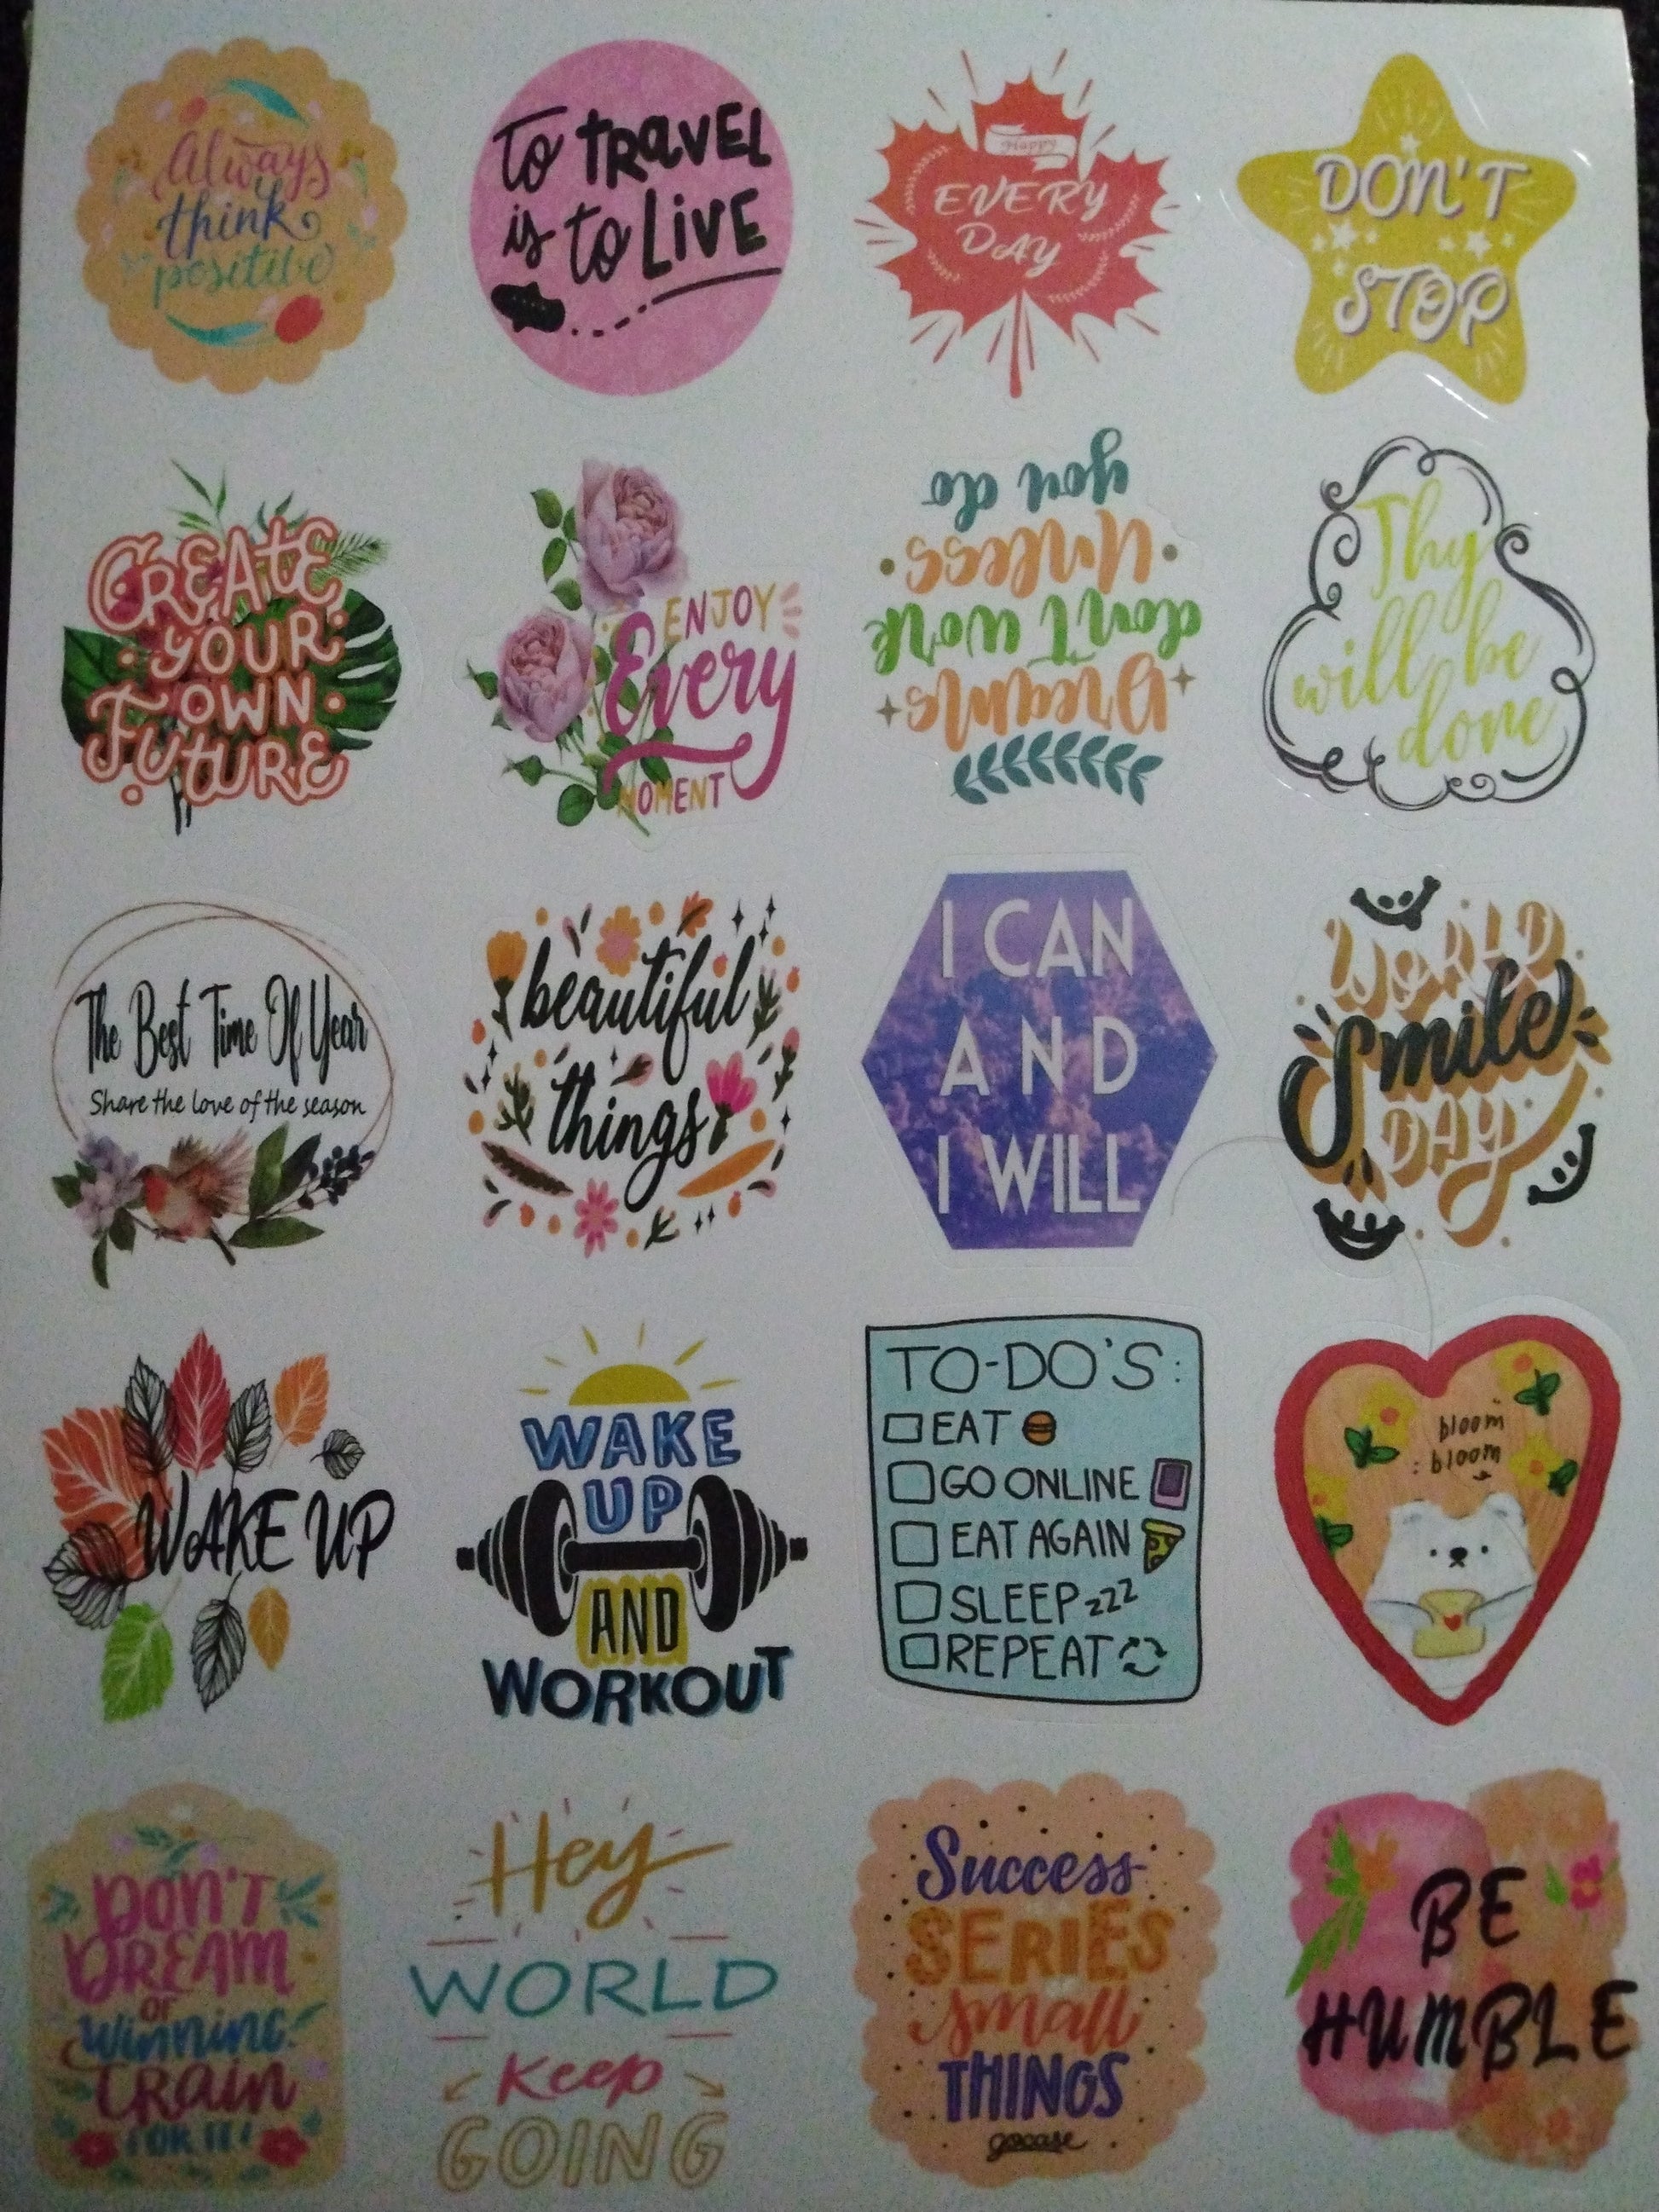 Always
think
positive
To TRAVEL
is to LIVE
Happy
EVERY
DAY
DON'T
STOP
CREATE
YOUR
OWN
FUTURE
ENJOY
Every
MOMENT
Dreams
don't work
Unless
you do
Thy
will be
done
The Best Time Of Year
Share the love of the season
beautiful
things
I CAN
AND
I WILL
WORLD
Smile
DAY
WAKE UP
WAKE
UP
AND
WORKOUT
TO-DO'S:
EAT
GO ONLINE
EAT AGAIN
SLEEP zzz
REPEAT
bloom
bloom
DON'T
DREAM
OF
Winning
TRAIN
FOR IT!
Hey
WORLD
Keep
GOING
Success
SERIES
small
THINGS
gocase
BE
HUMBLE